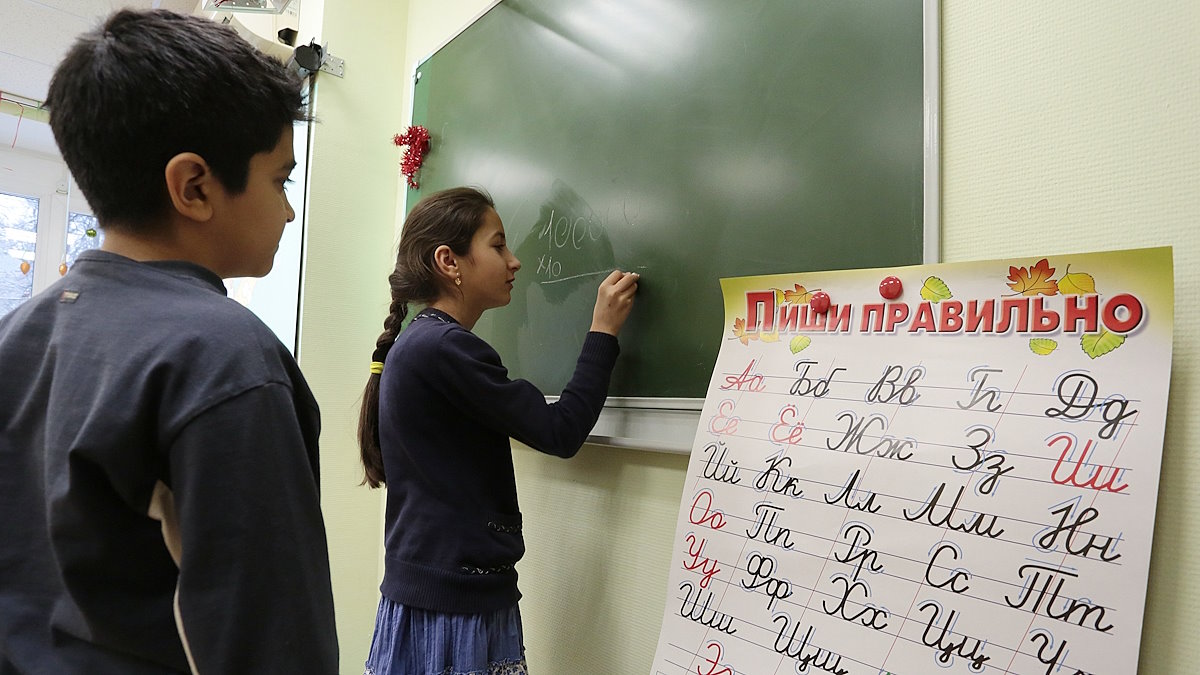 1000
×10
Пиши правильно
Аа Бб Вв Гг Дд
Ее Ёё Жж Зз Ии
Йй Кк Лл Мм Нн
Оо Пп Рр Сс Тт
Уу Фф Хх Цц Ч
Шш Щщ
Э